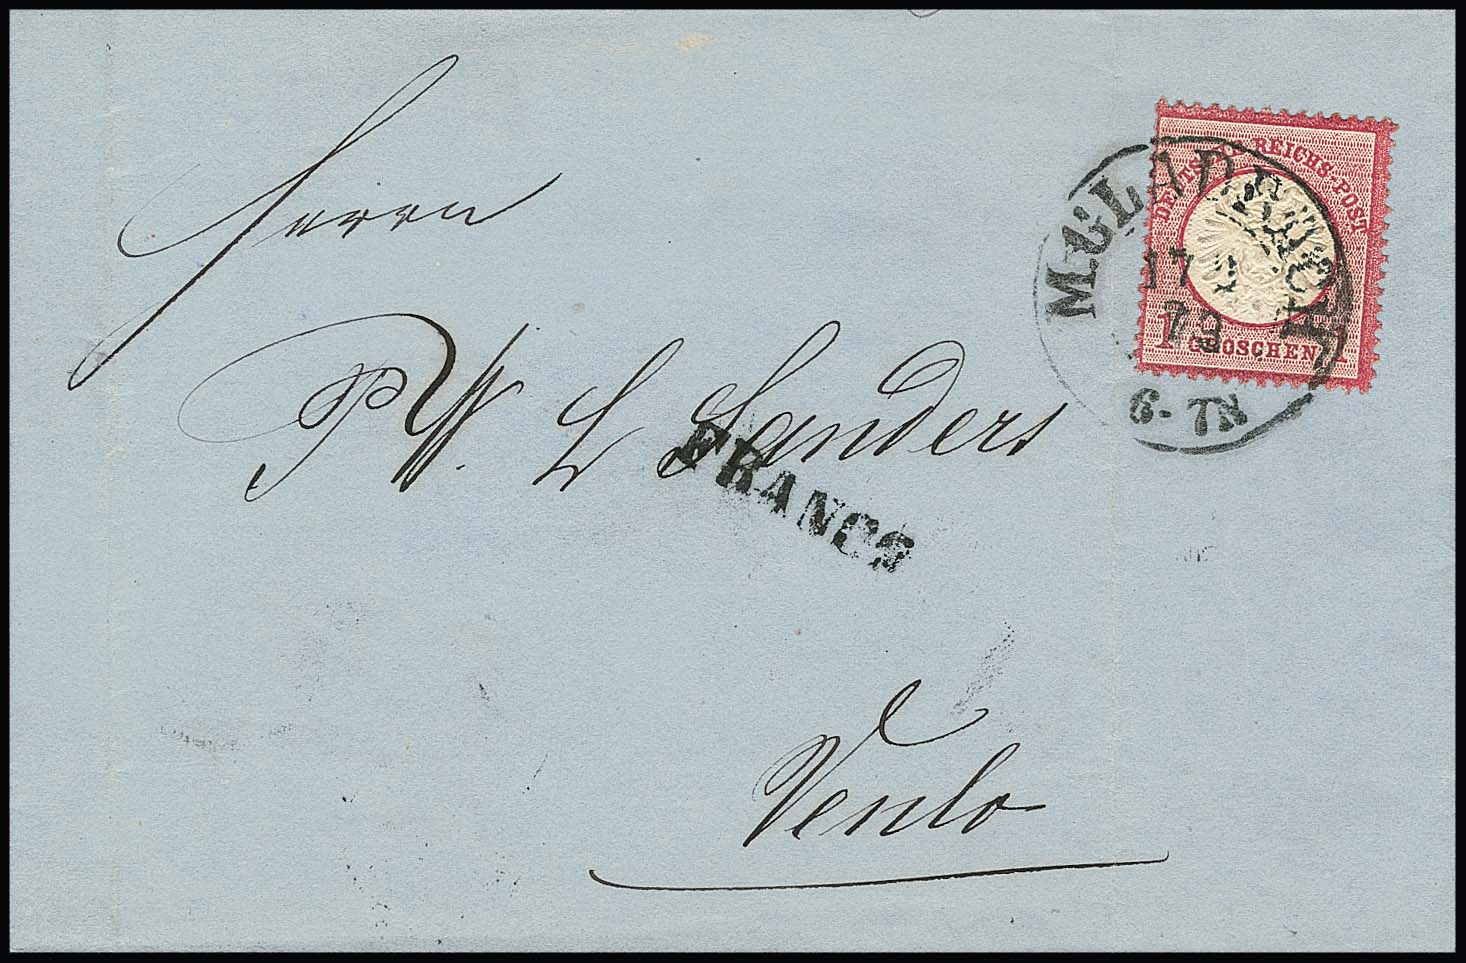 DEUTSCHE REICHS-POST
1 GROSCHEN 1
M.GLADBACH
17 2
73
6-7N
Herrn
P W. L Sanders
FRANCO
Venlo